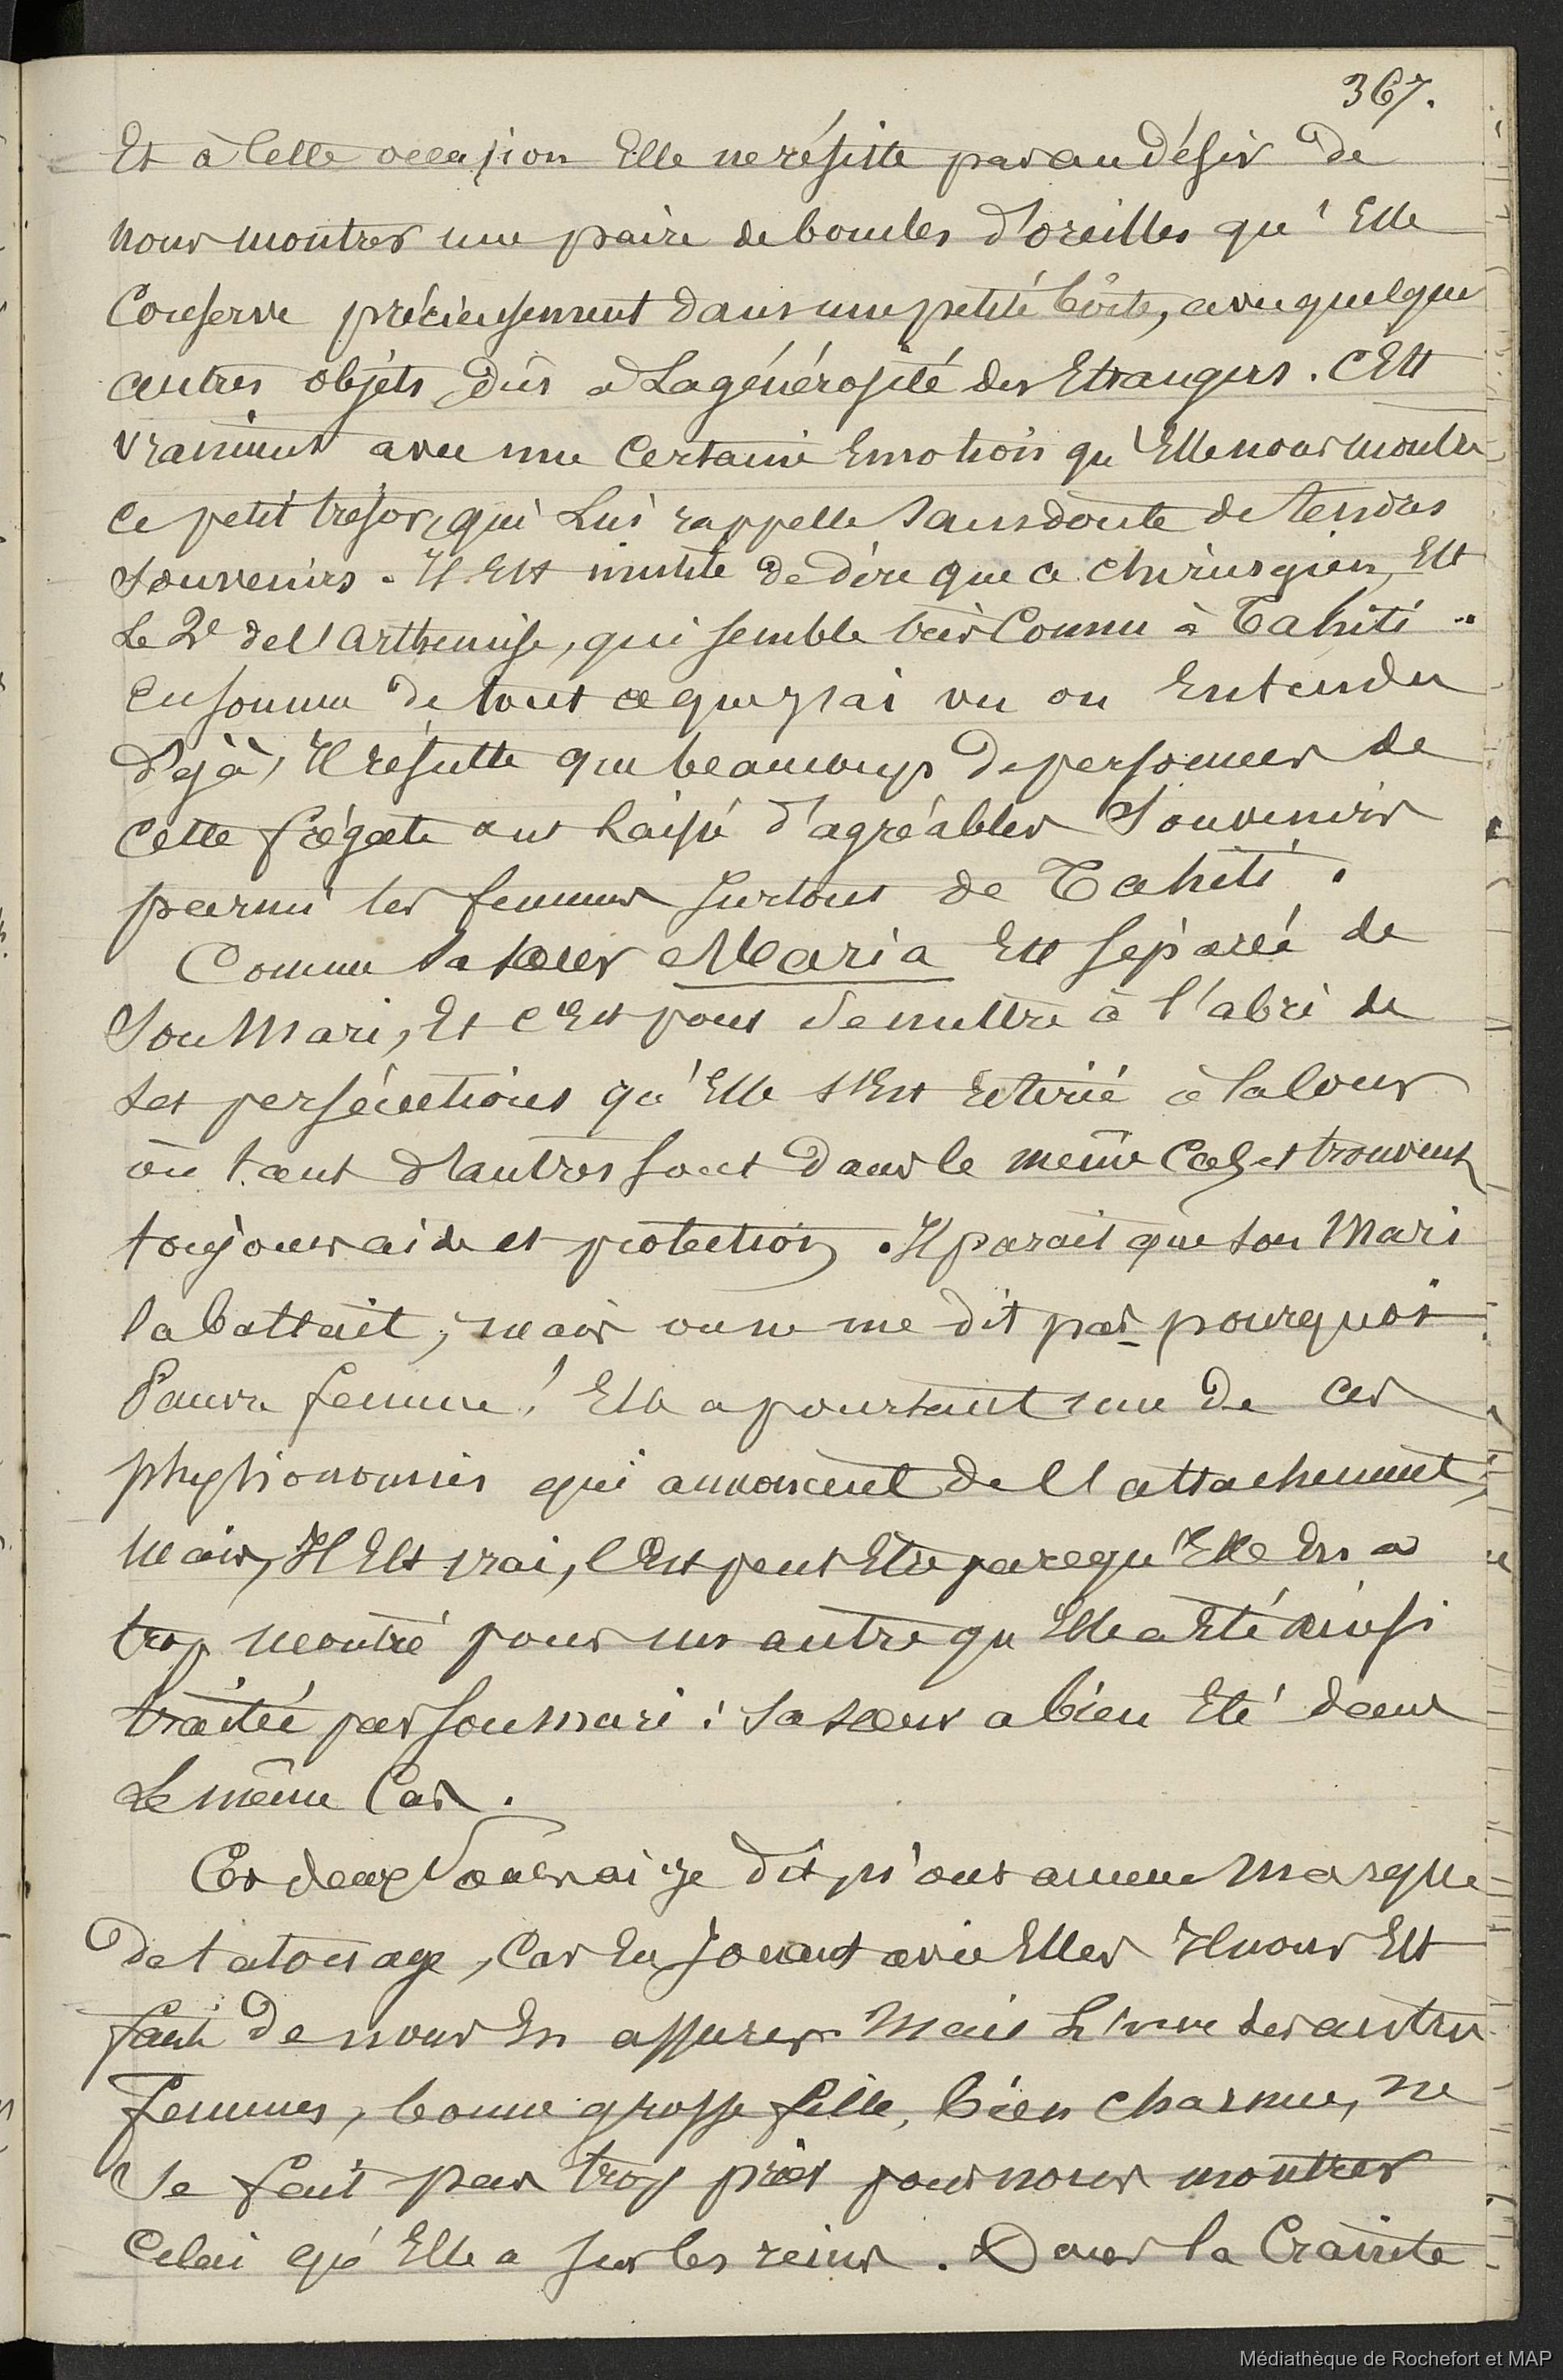 367.
Et à Cette occasion Elle ne résiste pas au désir de
nous montrer une paire de boucles d'oreilles qu'Elle
Conserve précieusement dans une petite boîte, avec quelques
autres objets dûs à La générosité des Etrangers. C'Est
vraiment avec une Certaine Emotion qu'Elle nous montre
Ce petit trésor, qui Lui rappelle Sans doute de tendres
Souvenirs. Il Est inutile de dire que ce chirurgien, Est
Le 2e de l'Arthemise, qui semble très Connu à Tahiti.
En somme de tout ce que j'ai vu ou Entendu
déjà, Il résulte que beaucoup de personnes de
Cette frégate ont laissé d'agréables Souvenirs
parmi les femmes surtout de Tahiti.
Comme sa sœur Maria Est séparée de
Son Mari, Et c'Est pour Se mettre à l'abri de
Ses persécutions qu'Elle s'Est retirée à la Cour
où tant d'autres sont dans le même Cas et trouvent
toujours aide et protection. Il parait que son Mari
la battait, mais on ne me dit pas pourquoi
Pauvre femme! Elle a pourtant une de ces
physionomies qui annoncent de l'attachement,
Mais, Il Est vrai, C'Est peut Etre parcequ'Elle En a
trop montré pour un autre qu'Elle a Eté ainsi
traitée par son mari: Sa sœur a bien Eté dans
Le même Cas.
Ces deux Sœurs ai je dit, n'ont aucune Marque
de tatouage, Car En jouant avec Elles Il nous Est
facile de nous En assurer. Mais L'une des autres
femmes, bonne grosse fille, bien charnue, ne
Se fait pas trop prier pour nous montrer
Celui qu'Elle a sur les reins. Dans la Crainte
Médiathèque de Rochefort et MAP